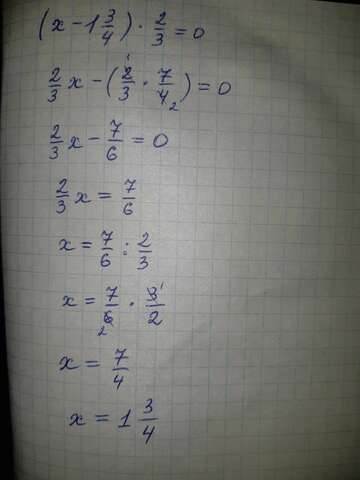 (x - 1 3/4) · 2/3 = 0
2/3 x - (2/3 · 7/4) = 0
1 2
2/3 x - 7/6 = 0
2/3 x = 7/6
x = 7/6 : 2/3
x = 7/6 · 3/2
2 1
x = 7/4
x = 1 3/4